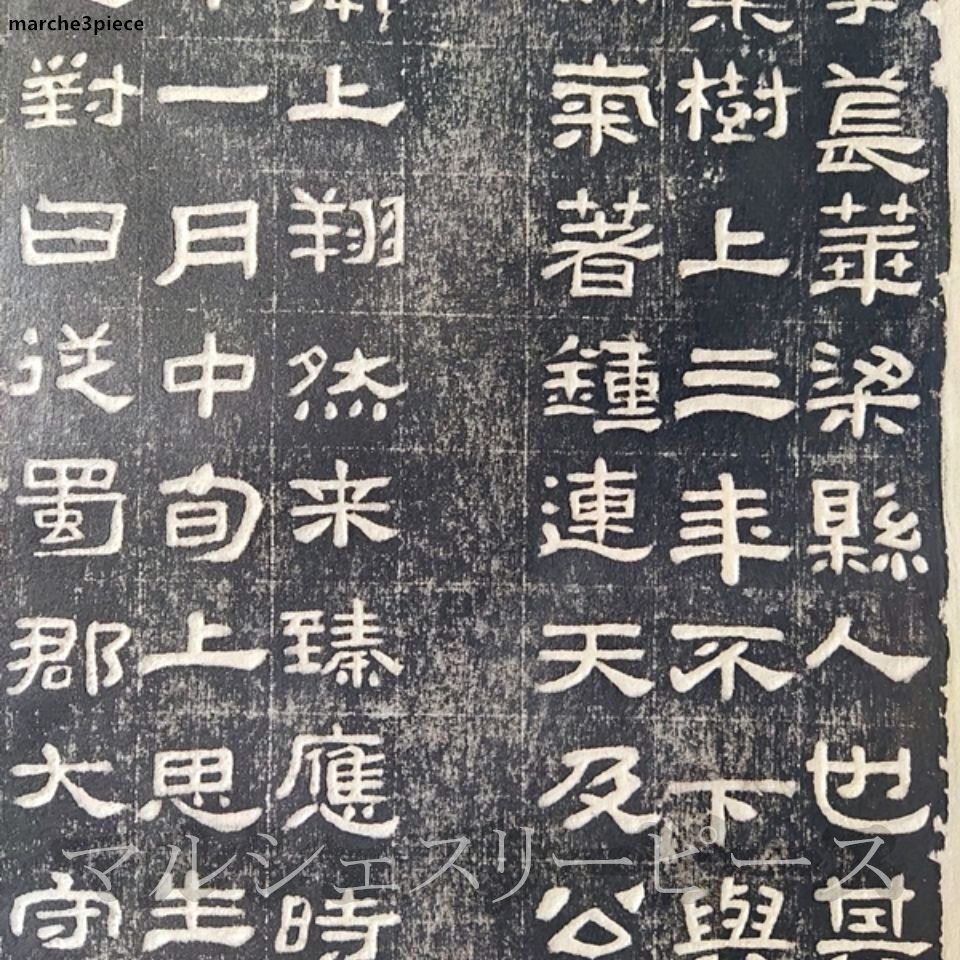 marche3piece
萇華梁縣人也其
樹上三年不下與
氣著鍾連天及公
上翔然来臻應時
一月中旬上思生
對曰従蜀郡大守
マルシェスリーピース